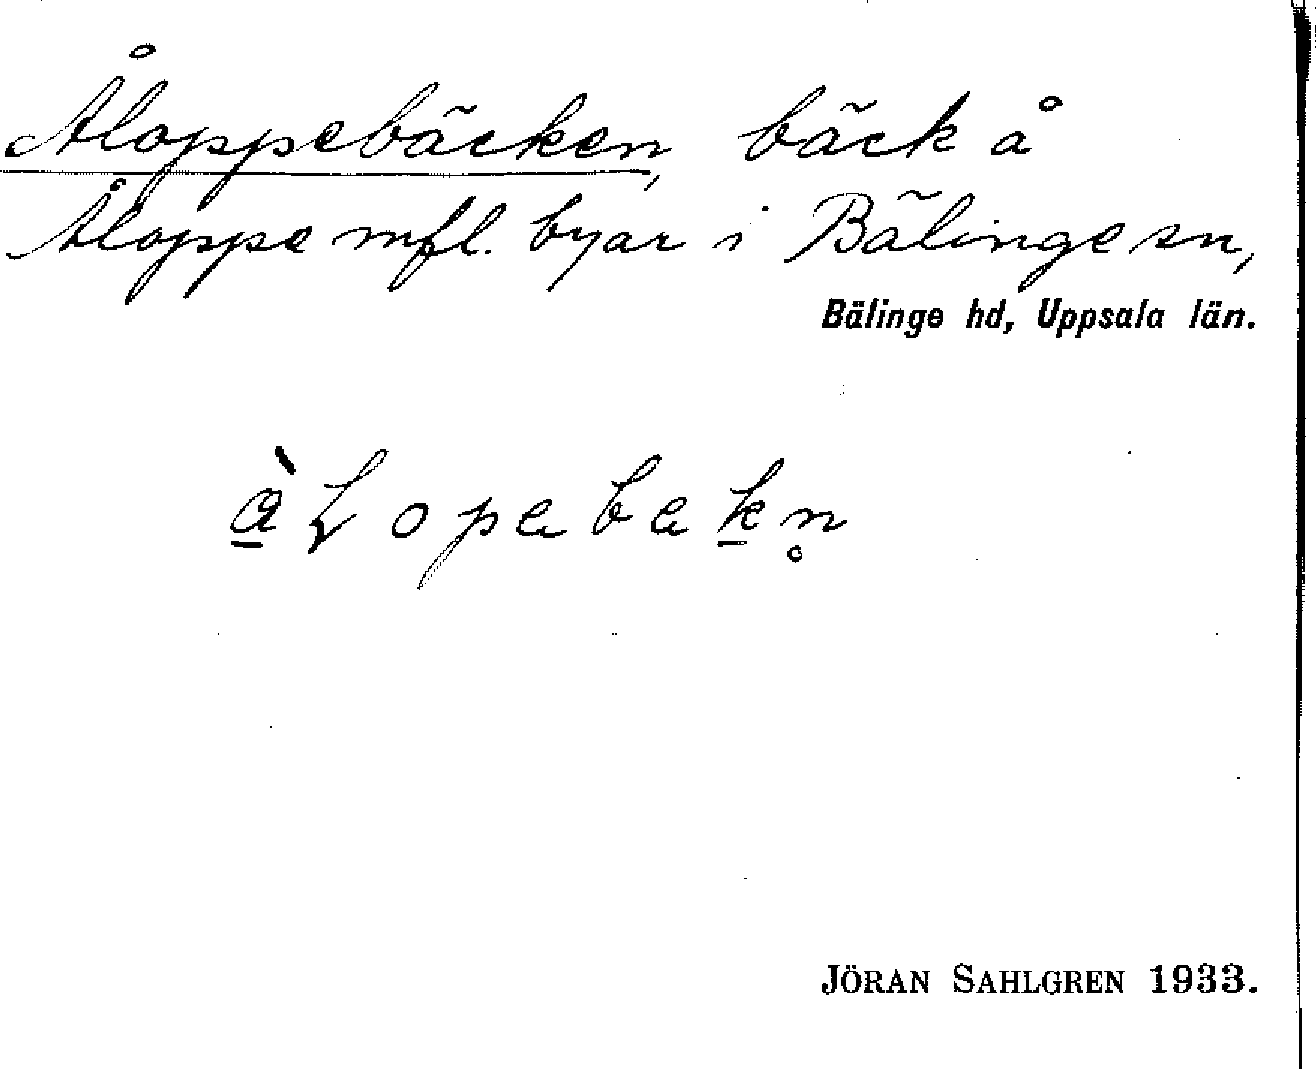 Åloppebäcken, bäck å
Åloppe mfl. byar i Bälinge sn,
Bälinge hd, Uppsala län.
JÖRAN SAHLGREN 1933.